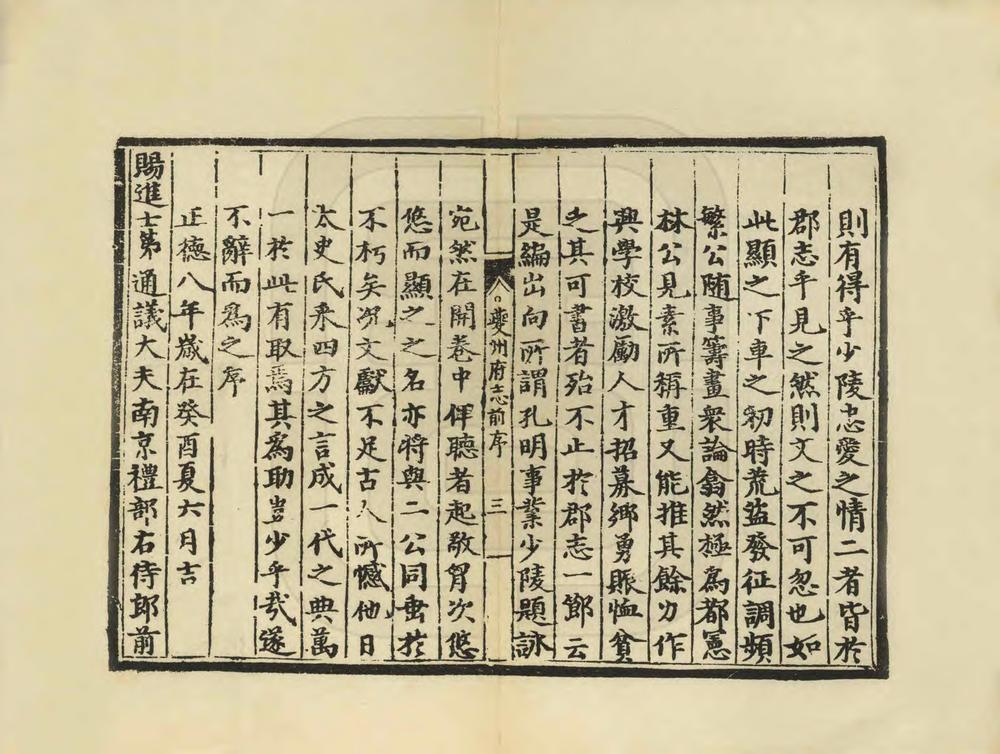 則有得乎少陵忠愛之情二者皆於
郡志乎見之然則文之不可忽也如
此顯之下車之初時荒盜發征調頻
繁公随事籌畫衆論翕然極爲都憲
林公見素所稱重又能推其餘力作
興學校激勵人才招募鄉勇賑恤貧
之其可書者殆不止於郡志一節云
是編出向所謂孔明事業少陵題詠
夔州府志前序
三
宛然在開卷中俾聽者起敬胷次悠
悠而顯之之名亦將與二公同垂於
不朽矣况文獻不足古人所憾他日
太史氏采四方之言成一代之典萬
一於此有取焉其爲助豈少乎哉遂
不辭而爲之序
正德八年歲在癸酉夏六月吉
賜進士第通議大夫南京禮部右侍郎前